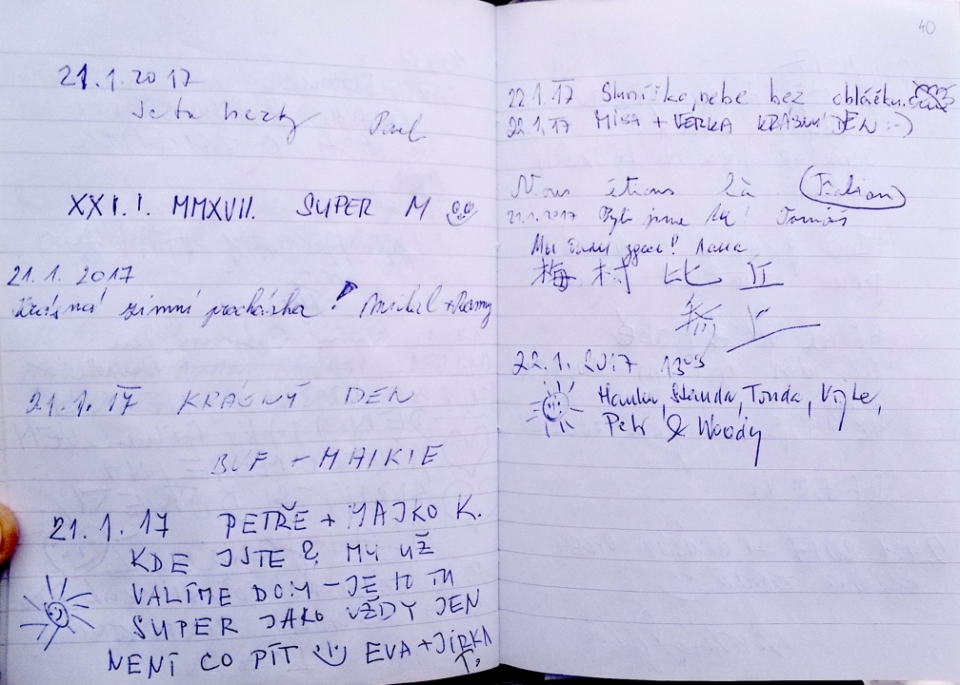 21.1.2017
Je tu hezky Pavel
XXI.I. MMXVII. SUPER M
21.1.2017
Krásná zimní procházka! Michal +
21.1.17 KRÁSNÝ DEN
BUF + MAIKIE
21.1.17 PETŘE + MAJKO K.
KDE JSTE? MY UŽ
VALÍME DOM – JE TO TU
SUPER JAKO VŽDY JEN
NENÍ CO PÍT EVA + JIRKA
T.
40
22.1.17 Sluníčko, nebe bez obláčku.
22.1.17 MÍŠA + VERKA KRÁSNÝ DEN :-)
Nous étions là.
21.1.2017 Byli jsme tu! Tomáš
Мы были здесь!
梅村比丘
22.1.2017 13
Hanka, Standa, Tonda,
Petr & Woody